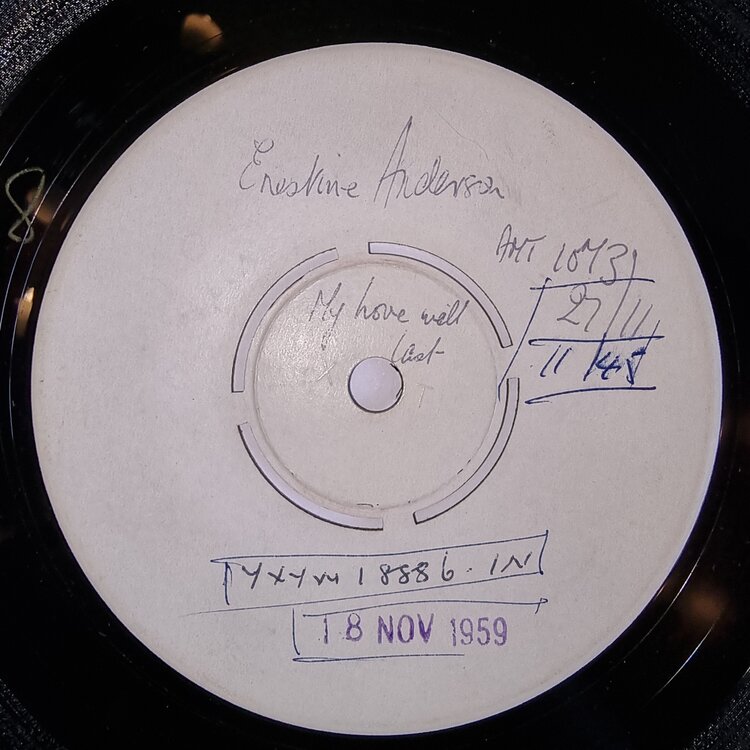 8
Ernestine Anderson
AMT 10731
27/11
11/45
My Love will
Last
YXYM 18886. 1N
18 NOV 1959